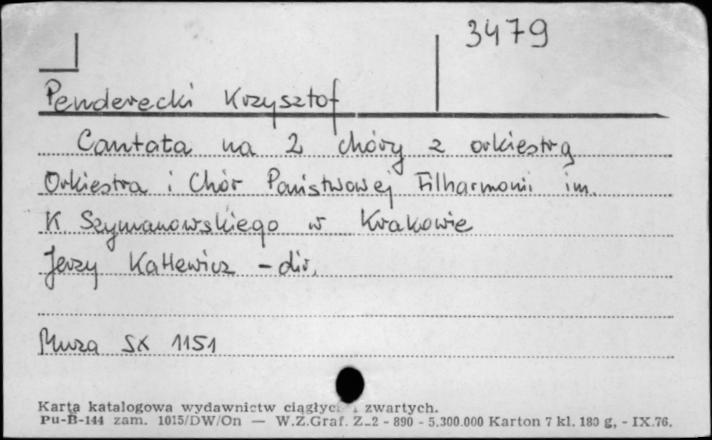 3479
Penderecki Krzysztof
Cantata na 2 chóry z orkiestrą
Orkiestra i Chór Państwowej Filharmonii im.
K. Szymanowskiego w Krakowie
Jerzy Katlewicz - dir.
Muza SX 1151
Karta katalogowa wydawnictw ciągłyc i zwartych.
Pu-B-144 zam. 1015/DW/On — W.Z.Graf. Z-2 - 890 - 5.300.000 Karton 7 kl. 180 g, - IX.76.